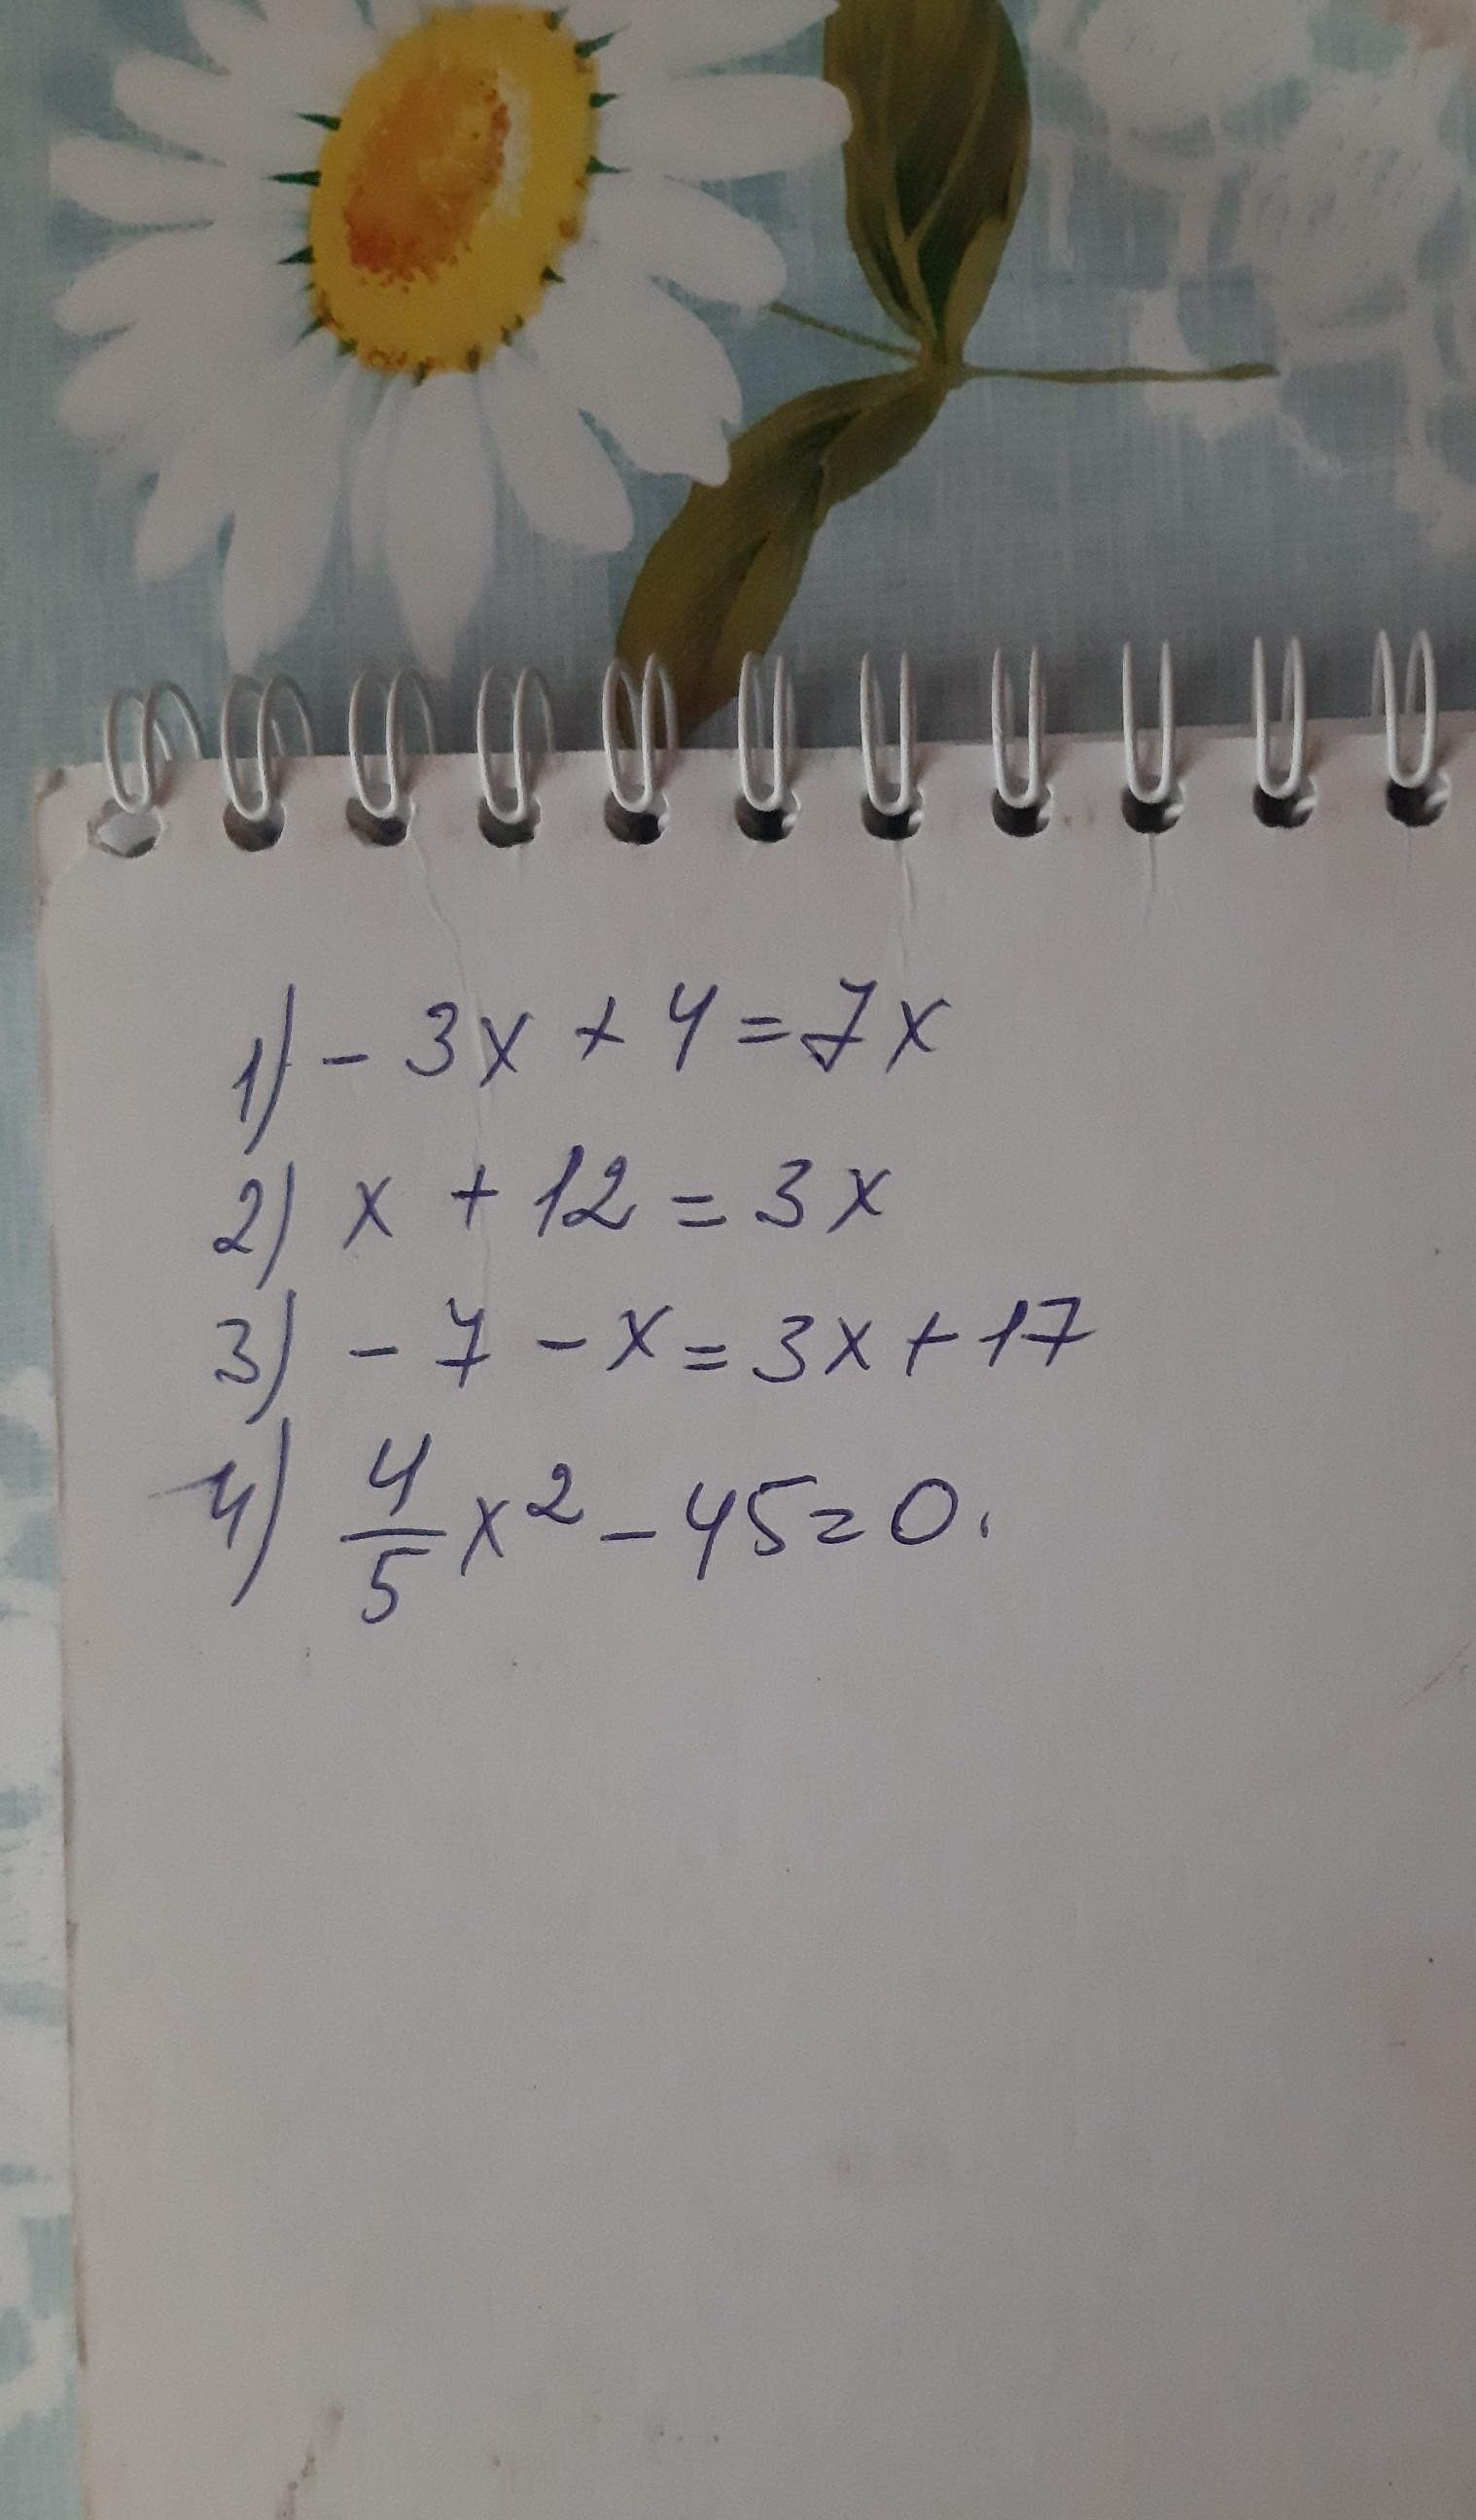 1) - 3x + 4 = 7x
2) x + 12 = 3x
3) - 7 - x = 3x + 17
4) 4/5 x² - 45 = 0.